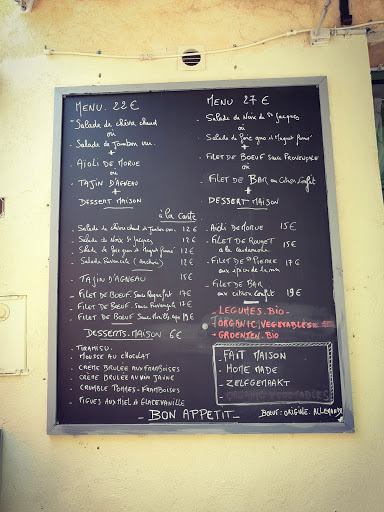 MENU. 22€
- Salade de chèvre chaud
où
- Salade de Jambon cru.
+
- AÏOLI DE MORUE
où
- TAJIN D'AGNEAU
+
DESSERT MAISON
MENU 27 €
- Salade de Noix de St Jacques
où
- Salade de foie gras et Magret fumé
+
- FILET DE BOEUF sauce PROVENÇALE
où
- FILET DE BAR au citron confit
+
- DESSERT MAISON
à la carte
- Salade de chèvre chaud et Jambon cru. 12€
- Salade de Noix St Jacques 12€
- Salade de foie gras et Magret fumé 12€
- Salade Provençale (Anchois) 12€
- TAJIN D'AGNEAU 15€
- FILET DE BOEUF. Sauce Roquefort 17€
- FILET DE BOEUF sauce Provençale 17€
- FILET DE BOEUF
DESSERTS. MAISON 6€
- TIRAMISU.
- MOUSSE AU CHOCOLAT
- CRÈME BRULEE AUX FRAMBOISES
- CRÈME BRULEE AU
- CRUMBLE POMMES - FRAMBOISES
- FIGUES AU MIEL & GLACE VANILLE
- Aïoli DE MORUE 15€
- FILET DE ROUGET 15€
- FILET DE St PIERRE 17€
- FILET DE BAR
au citron confit 19€
- LEGUMES. BIO -
- ORGANIC. VEGETABLES
- GROENTEN. BIO
- FAIT MAISON
- HOME MADE
- ZELFGEMAAKT
- BON APPETIT -
BOEUF: ORIGINE. ALLEMAGNE